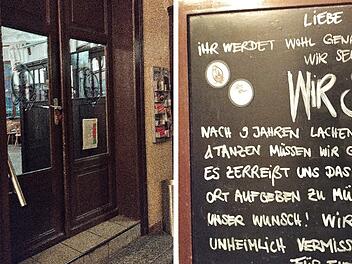 LIEBE
IHR WERDET WOHL GENA
WIR SE
WIR
NACH 9 JAHREN LACHEN
& TANZEN MÜSSEN WIR G
ES ZERREIẞT UNS DAS
ORT AUFGEBEN ZU MÜ
UNSER WUNSCH! WIR
UNHEIMLICH VERMISS
FÜR